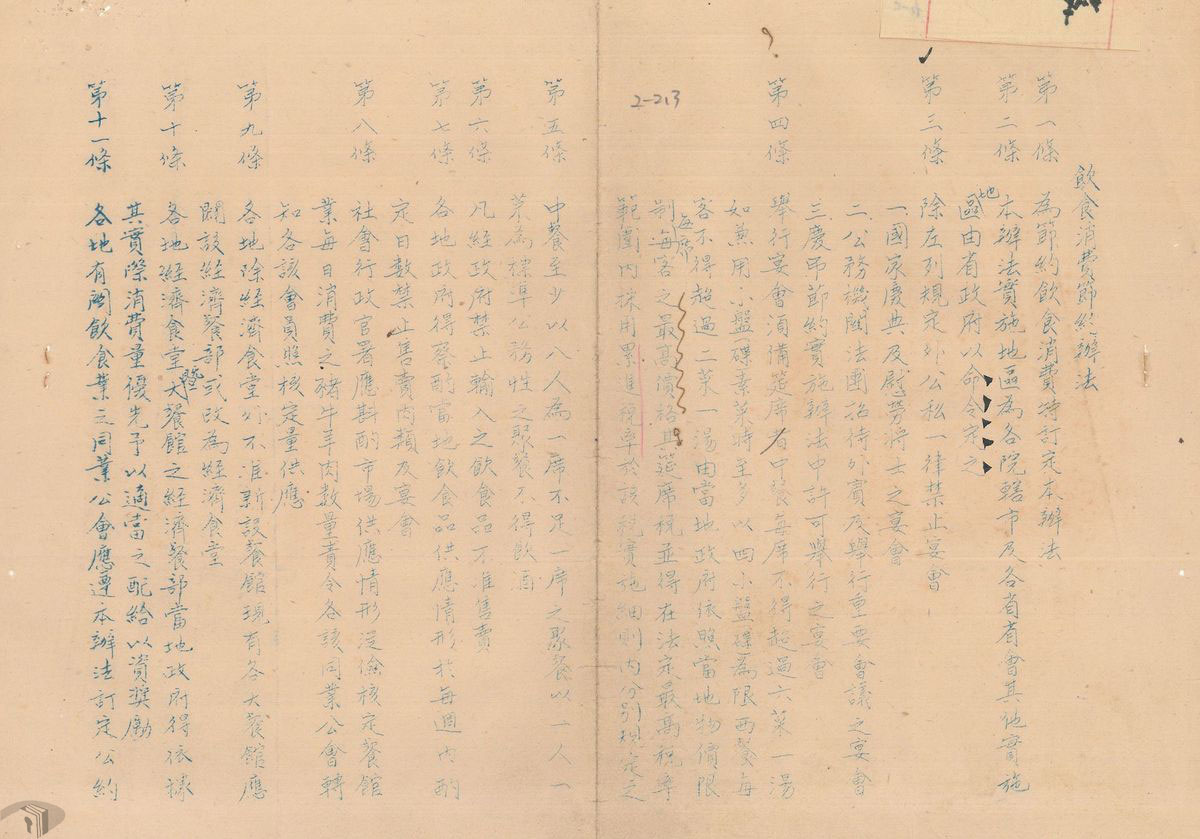 飲食消費節約辦法
第一條　為節約飲食消費特訂定本辦法
第二條　本辦法實施地區為各院轄市及各省省會其他實施
地區由省政府以命令定之
第三條　除左列規定外公私一律禁止宴會
一、國家慶典及慰勞將士之宴會
二、公務機關法團招待外賓及舉行重要會議之宴會
三、慶弔節約實施辦法中許可舉行之宴會
第四條　舉行宴會須備筵席者中餐每席不得超過六菜一湯
如兼用小盤碟素菜時至多以四小盤碟為限西餐每
客不得超過二菜一湯由當地政府依照當地物價限
制每席每客之最高價格其筵席稅並得在法定最高稅率
範圍內採用累進稅率於該稅實施細則內分別規定之
2-213
第五條　中餐至少以八人為一席不足一席之聚餐以一人一
菜為標準公務性之聚餐不得飲酒
第六條　凡經政府禁止輸入之飲食品不准售賣
第七條　各地政府得察酌當地飲食品供應情形於每週內酌
定日數禁止售賣肉類及宴會
第八條　社會行政官署應斟酌市場供應情形從儉核定餐館
業每日消費之豬牛羊肉數量責令各該同業公會轉
知各該會員照核定量供應
第九條　各地除經濟食堂外不准新設餐館現有各大餐館應
闢設經濟餐部或改為經濟食堂
第十條　各地經濟食堂暨大餐館之經濟餐部當地政府得依據
其實際消費量優先予以適當之配給以資獎勵
第十一條　各地有關飲食業之同業公會應遵本辦法訂定公約